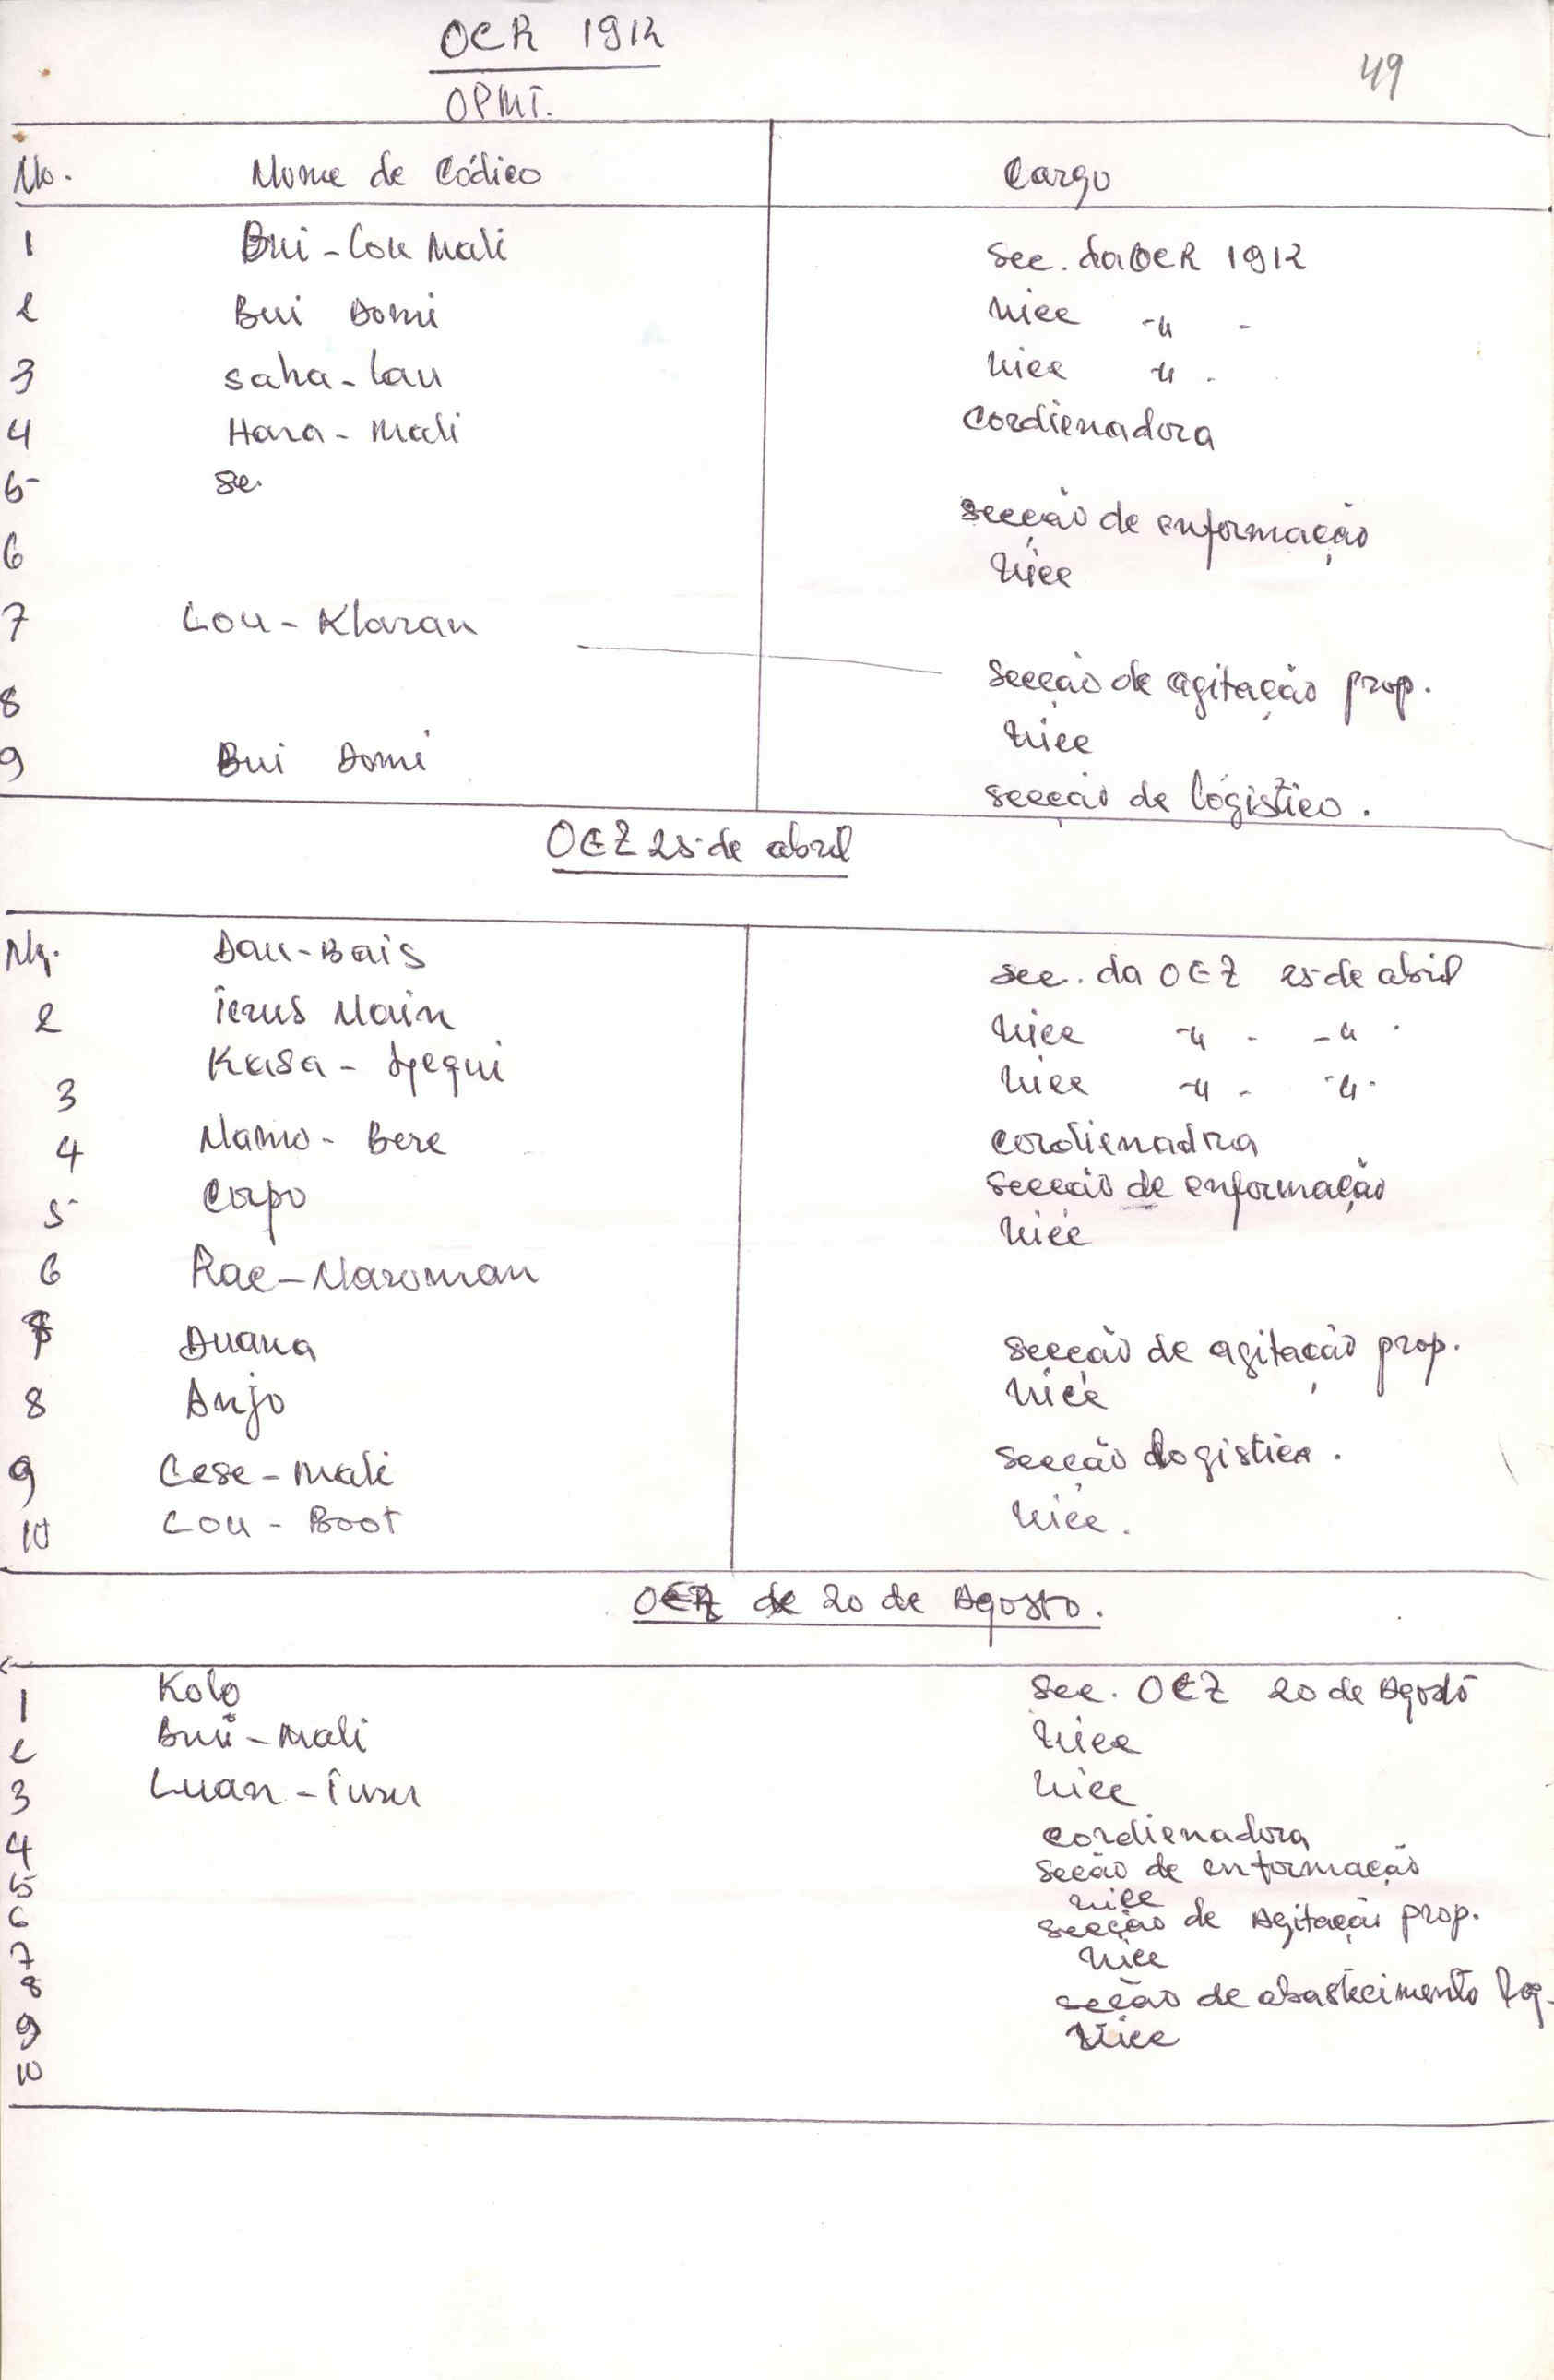 OCR 1912
49
OPMT.
No. Nome de Códico Cargo
1 Bui-Lou Mali Sec. da OCR 1912
2 Bui Domi Vice -"-
3 saha-Lau Vice -"-
4 Hara-Mali Cordienadora
5 se.
secção de enformação
6 Vice
7 Lou-Klaran
secção de agitação prop.
8 Vice
9 Bui Domi
secção de lógistico.
OEZ 25 de abril
No. Dau-Bais sec. da OEZ 25 de abril
2 Icrus Nain Vice -"- -"-
3 Kasa-Djequi Vice -"- -"-
4 Namo-Bere cordienadora
5 Corpo secção de enformação
Vice
6 Rae-Naroman
7 Duana secção de agitação prop.
8 Anjo Vice
9 Cese-Mali secção Logistica.
10 Lou-Boot Vice.
de 20 de Agosto.
1 Kolo Sec. OEZ 20 de Agosto
2 Bui-Mali Vice
3 Luan-Turu Vice
4 cordienadora
5 secão de enformação
6 Vice
secção de Agitação prop.
7 Vice
8 secão de abastecimento Log.
9 Vice
10